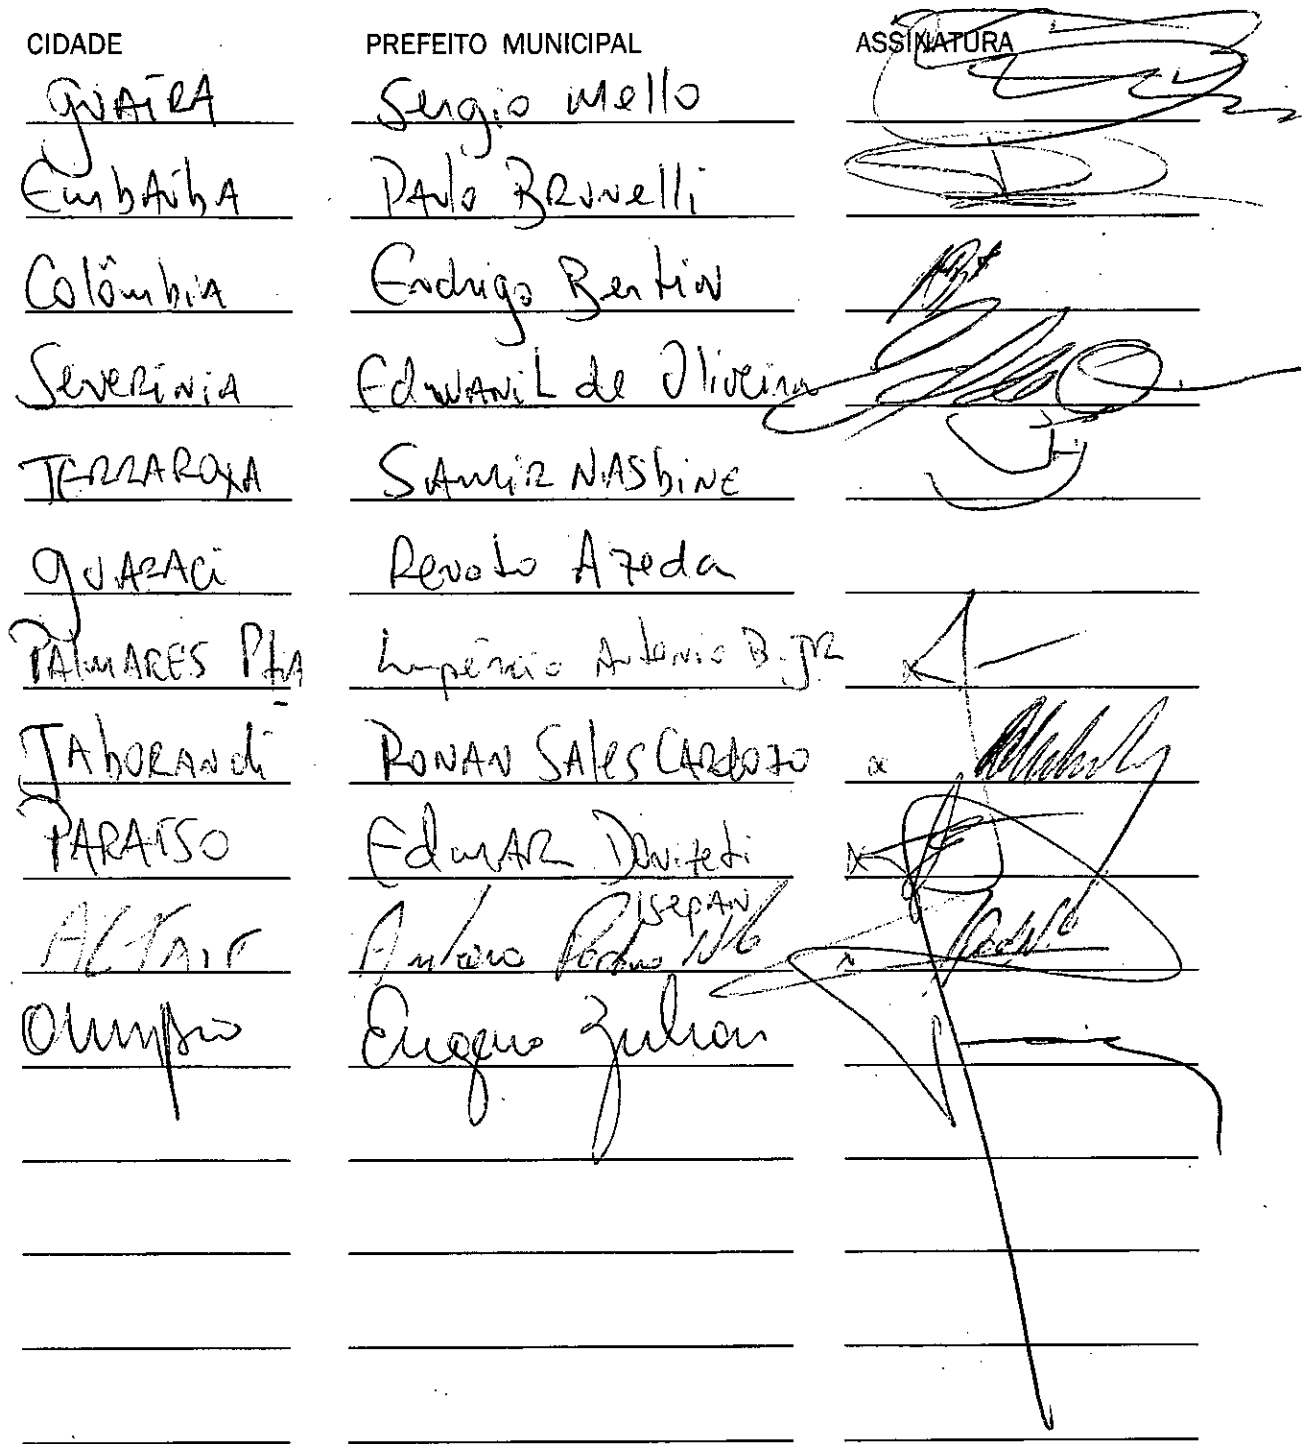 CIDADE PREFEITO MUNICIPAL ASSINATURA
GUAÍRA Sergio Mello
EmbAúbA PAulo BRUNelli
Colômbia Endrigo Bertin
SeveRíNiA EdwANiL de Oliveira
TERRA ROXA SAmiR NASbiNE
GUARACi Renato Azeda
PAlmARES PtA Lupércio Antonio B. JR
JAboRANdi RONAN SAles CARDOZO
PARAÍSO EdmAR Donizeti
isepAN
ALTAIR Antonio Padron Neto
Olimpia Eugenio Zuliani